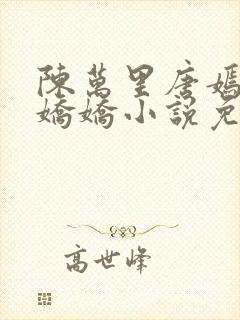 陳萬里唐嫣
嬌嬌小說免
高世峰